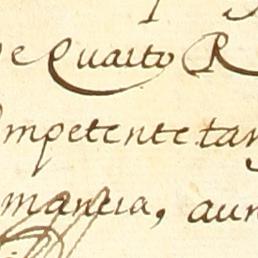 e Quarto R
mpetente tan
mancia, aun